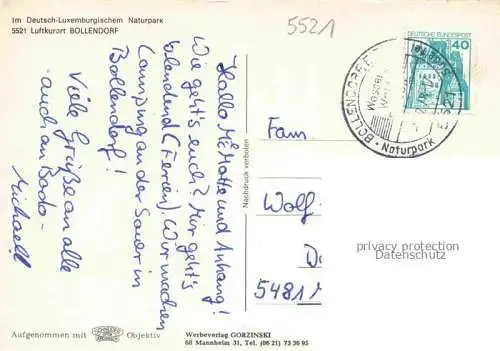 Im Deutsch-Luxemburgischem Naturpark
5521 Luftkurort BOLLENDORF
5521
DEUTSCHE BUNDESPOST
40
BOLLENDORF
Naturpark
Hallo Motte und Anhang!
Wie geht's euch? Mir geht's
blendend (Ferien). Wir machen
Camping an der Sauer in
Bollendorf!
Viele Grüße an alle
- auch an Bodo -
Michael!
Nachdruck verboten
Fam
Wolf
5481
privacy protection
Datenschutz
Aufgenommen mit
Objektiv
Werbeverlag GORZINSKI
68 Mannheim 31, Tel. (06 21) 73 36 95